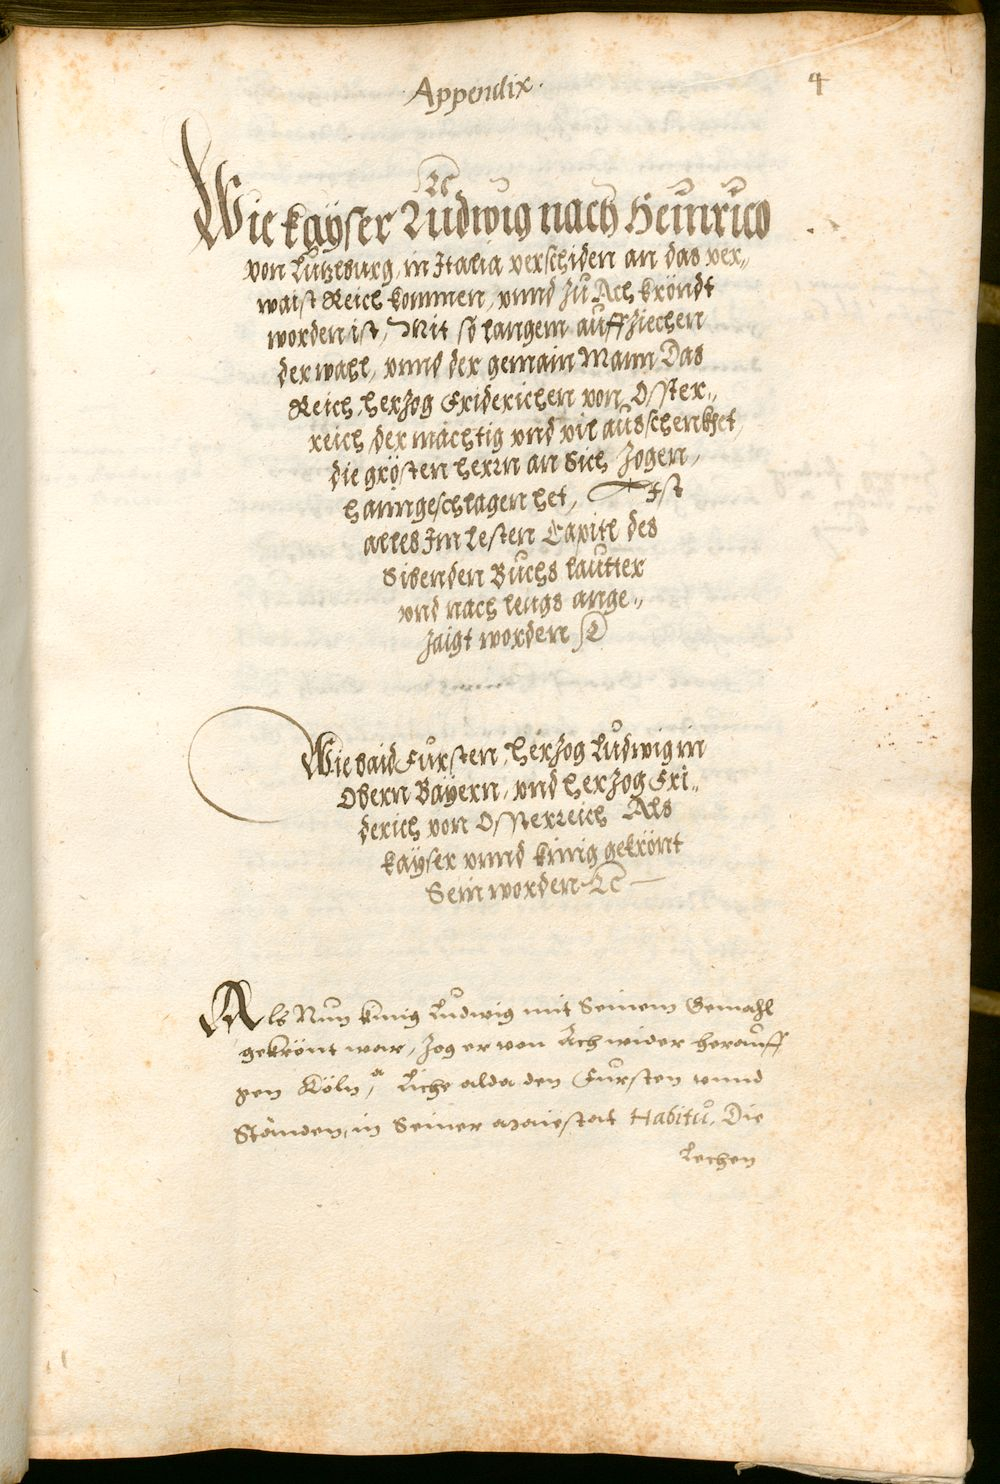 Appendix.
4
Wie kaÿser Ludwig nach Heinrico
von Lutzlburg, in Italia verschiden an das ver„
waist Reich kommen, vnnd zu Ach kröndt
worden ist, Mit so langem auffziechen
der wahl, vnnd der gemain Mann Das
Reich, herzog Friderichen von Osster„
reich, der mächtig vnd vil ausschenkhet,
die grösten herrn an Sich zogen,
hanngeschlagen het, Ist
alles Im lesten Capitl des
Sibenden Buchs lautter
vnd nach lengs ange„
zaigt worden
Wie baid Fürsten, herzog Ludwig in
Obern Bayern, vnd herzog Fri„
derich von Ossterreich Als
kayser vnnd künig gekrönt
Sein worden
Als Nun künig Ludwig mit Seinem Gemahl
gekrönt war, zog er von Ach wider herauff
gen Köln, Liche alda den Fürsten vnnd
Stånden, in Seiner Maiestat Habitu, Die
Lechen